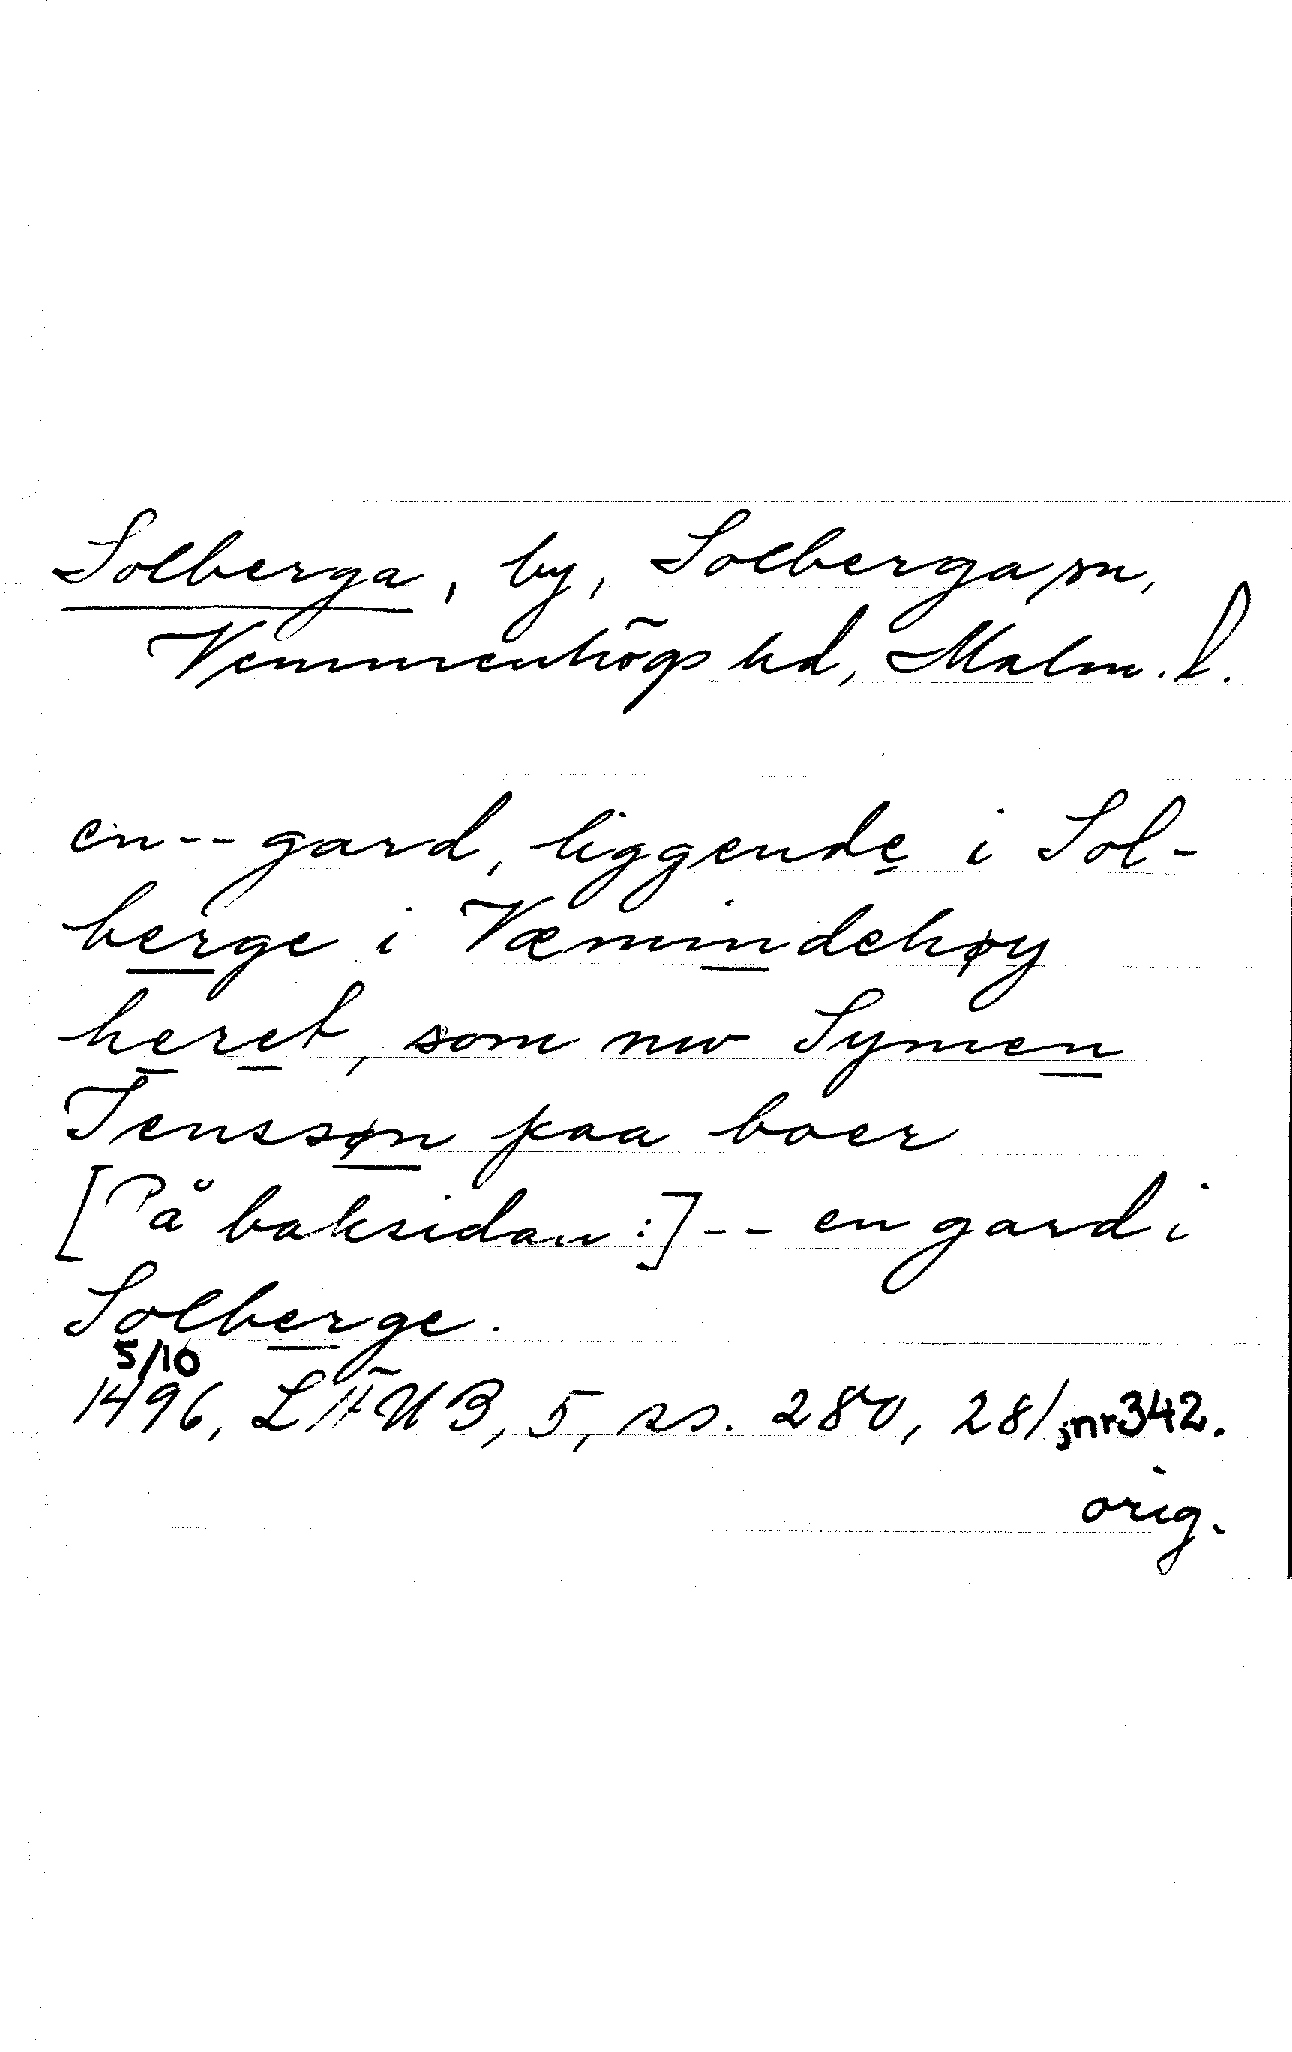 Solberga, by, Solberga sn,
Vemmenhögs hd, Malm. l.
en -- gard, liggende i Sol-
berge i Væmindehøy
heret, som nw Symen
Jenssøn paa boer
[På baksidan:] -- en gard i
Solberge.
5/10
1496, LÄUB, 5, ss. 280, 281; nr 342.
orig.